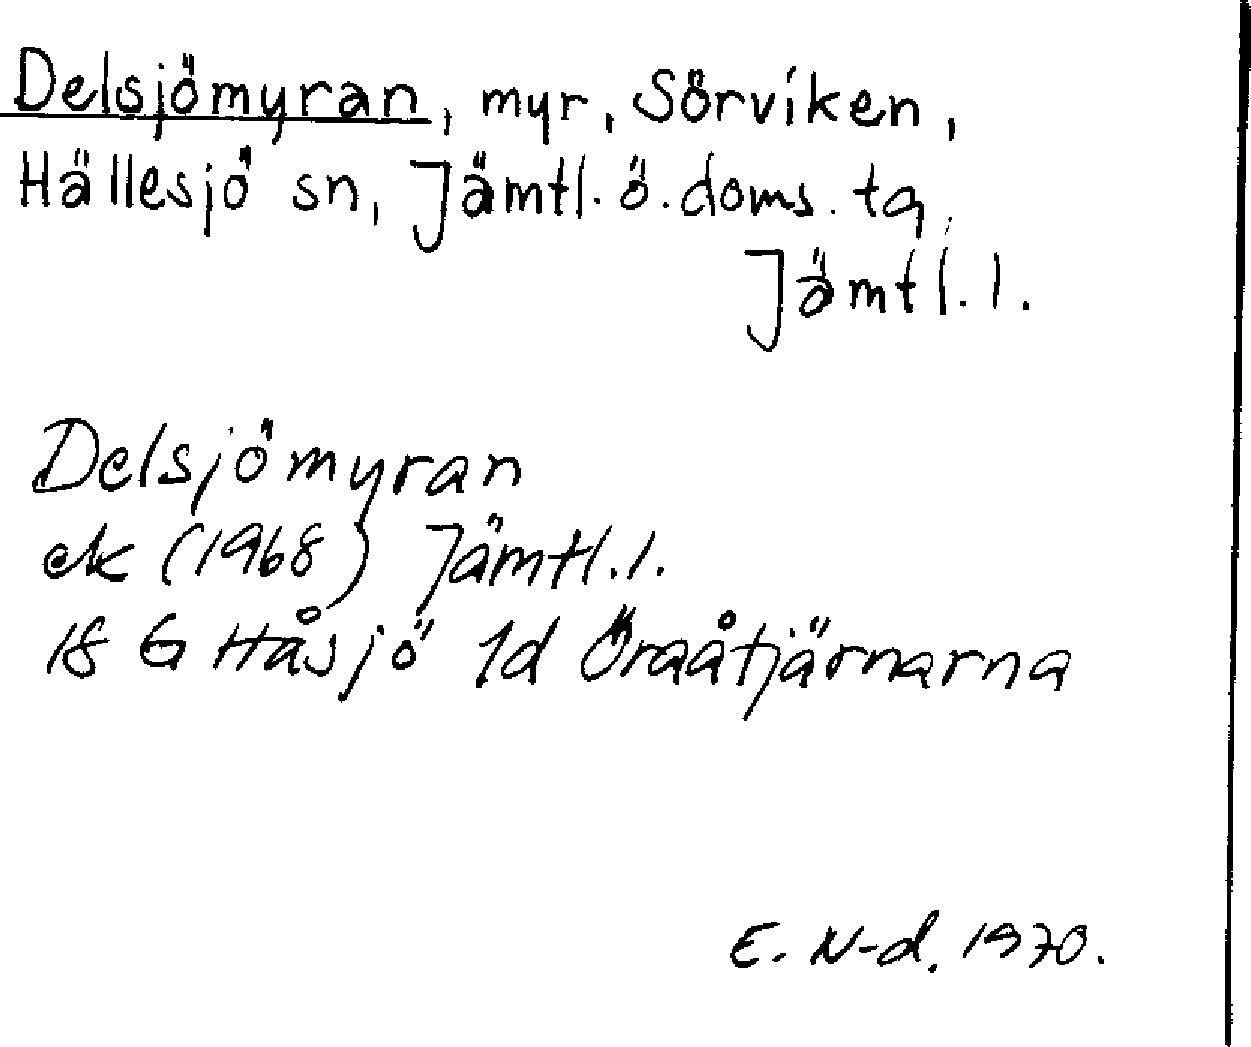 Delsjömyran, myr, Sörviken,
Hällesjö sn, Jämtl. ö. doms. tg,
Jämtl. l.
Delsjömyran
ek (1968) Jämtl. l.
18 G Håsjö 1d Öraåtjärnarna
E. N-d. 1970.